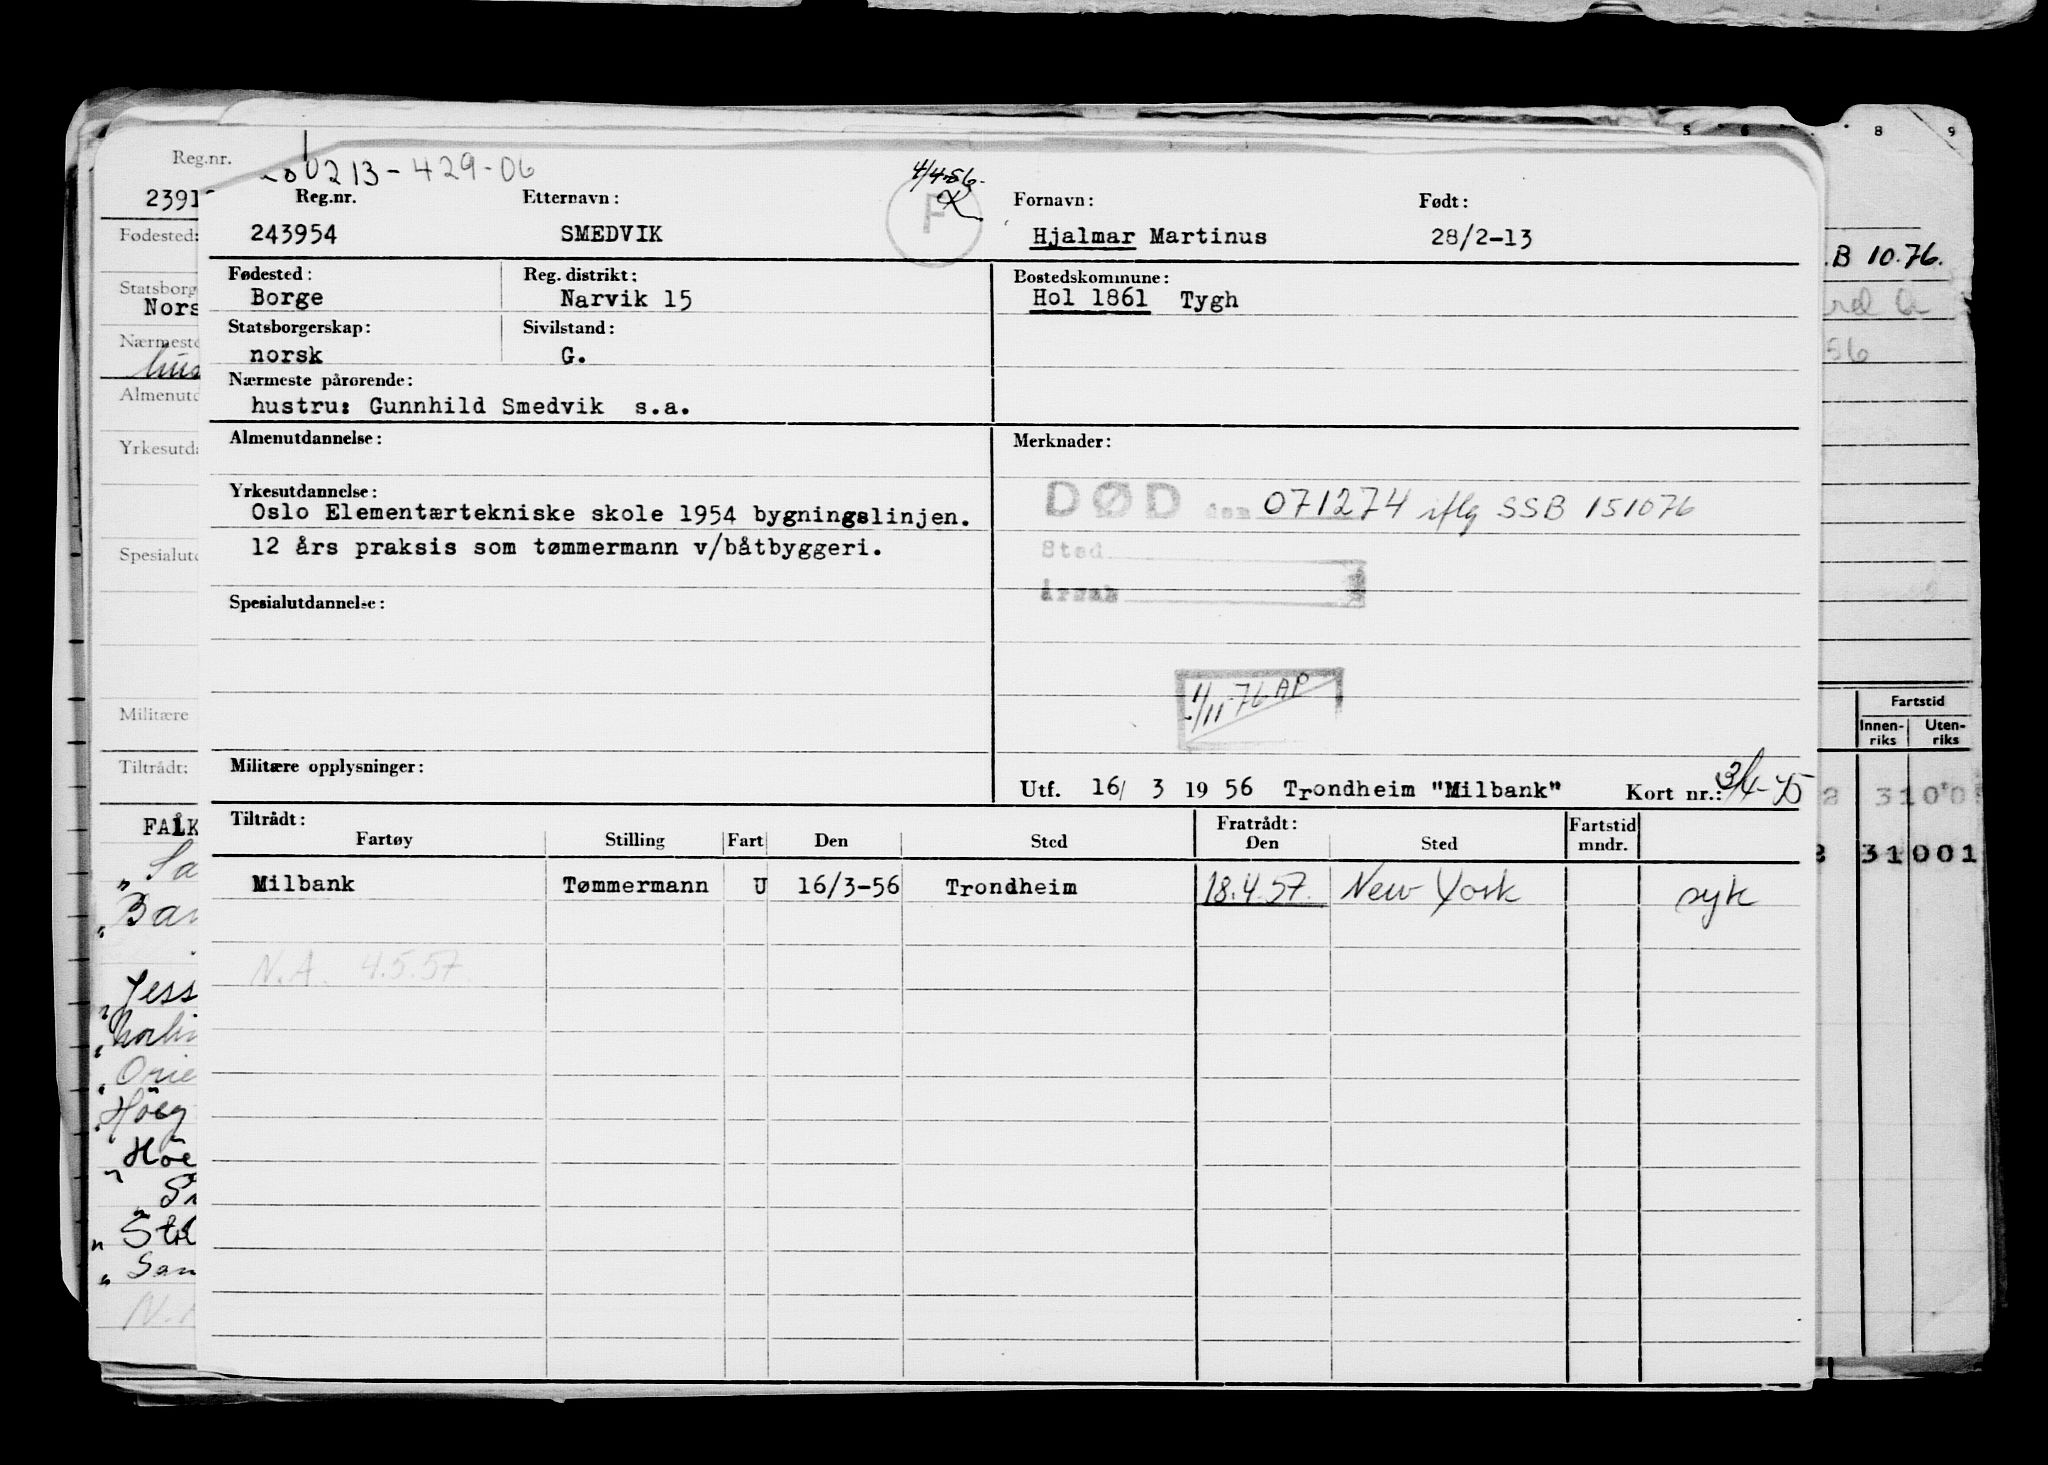 0213-429-06
4/4-56.
Reg.nr. Etternavn: F Fornavn: Født:
243954 SMEDVIK Hjalmar Martinus 28/2-13
Fødested: Reg. distrikt: Bostedskommune:
Borge Narvik 15 Hol 1861 Tygh
Statsborgerskap: Sivilstand:
norsk G.
Nærmeste pårørende:
hustru: Gunnhild Smedvik s.a.
Almenutdannelse: Merknader:
Yrkesutdannelse: DØD den 071274 iflg SSB 151076
Oslo Elementærtekniske skole 1954 bygningslinjen.
12 års praksis som tømmermann v/båtbyggeri. Sted
årsak
Spesialutdannelse:
1/11-76 AP
Militære opplysninger:
Utf. 16/ 3 19 56 Trondheim "Milbank" Kort nr.:
Tiltrådt: Fratrådt: Fartstid
Fartøy Stilling Fart Den Sted Den Sted mndr.
Milbank Tømmermann U 16/3-56 Trondheim 18.4.57. New York syk
N.A. 4.5.57.
Reg.nr.
2391
Fødested:
Statsborg
Nors
Nærmeste
hus
Almenutd
Yrkesutda
Spesialutd
Militære
Tiltrådt:
FALK
" Sa
" Bar
" Jess
" Orie
" Höeg
" Höe
" Sta
" San
N.A
5 6 8 9
.B 10.76.
56
Fartstid
Innen-riks Uten-riks
31001